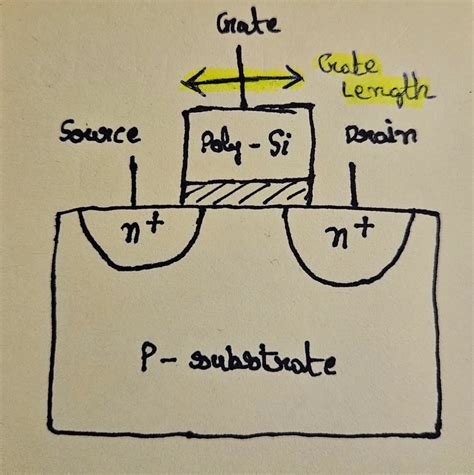 Gate
Gate
Length
Source
Poly-Si
Drain
n+
n+
P-substrate